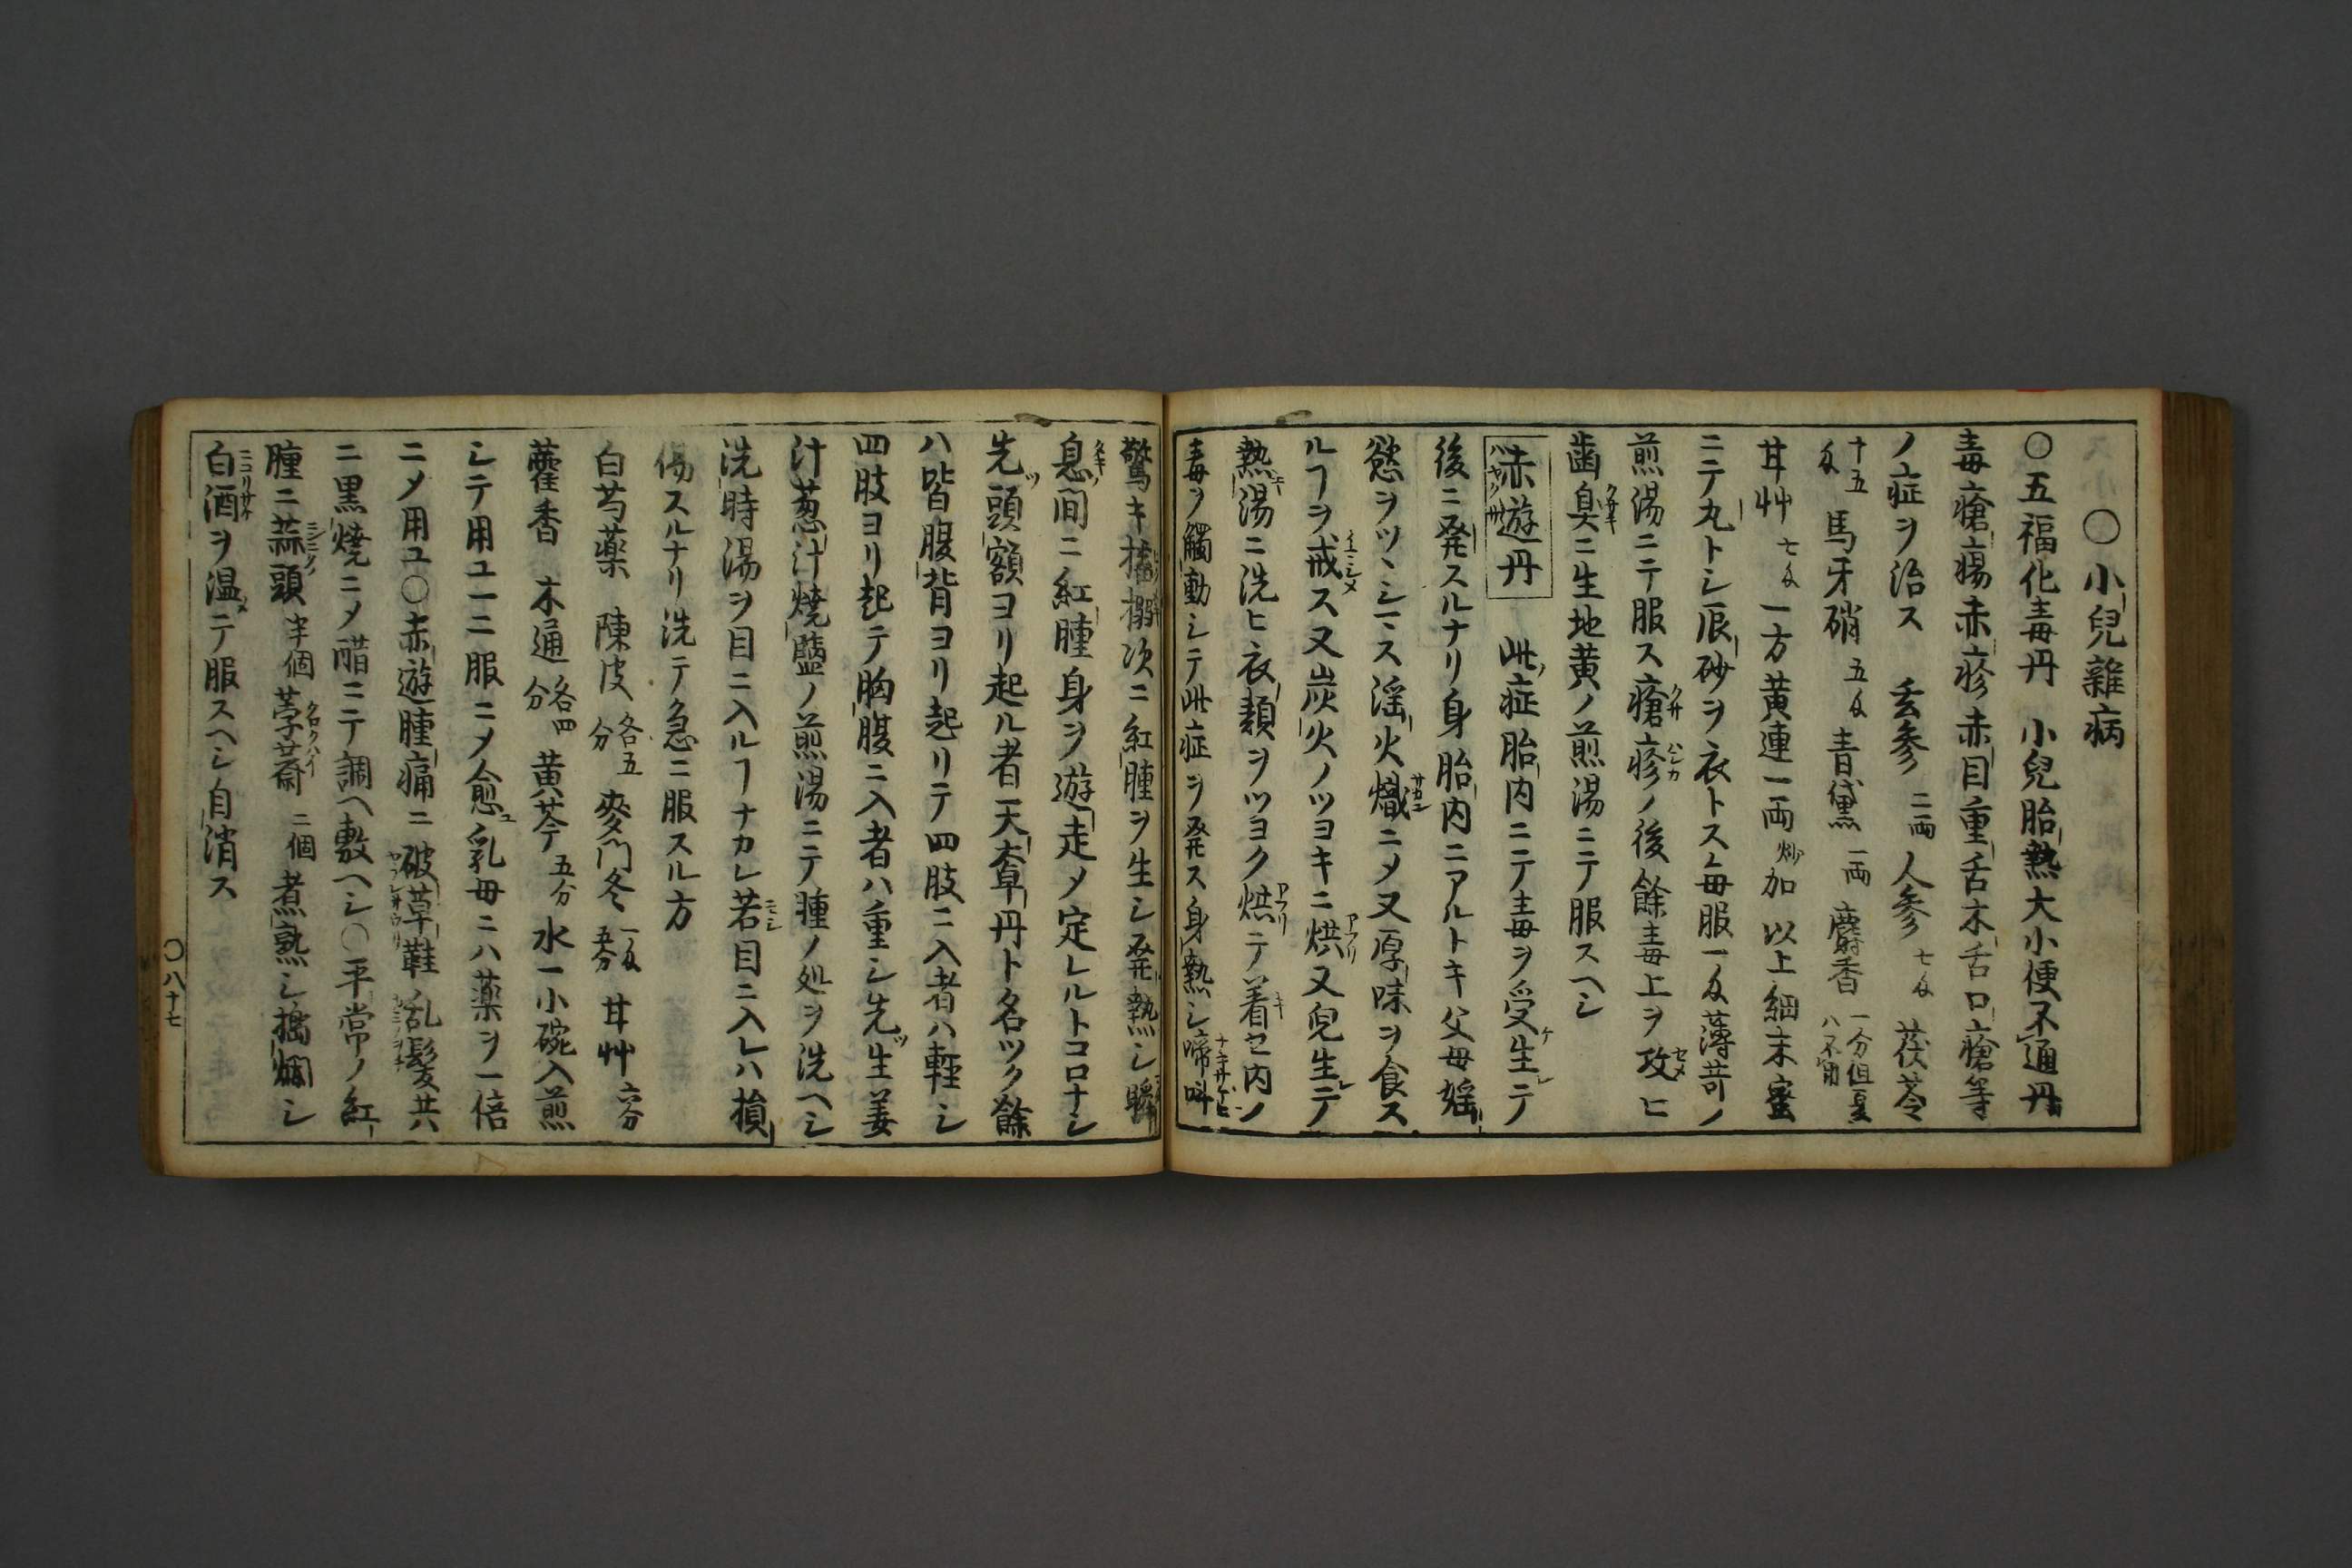 〇小兒雜病
〇五福化毒丹　小兒胎熱大小便不通丹
毒瘡瘍赤疹赤目重舌木舌口瘡等
ノ症ヲ治ス　玄參二両人參七匁茯苓
十五匁馬牙硝五匁青黛一両麝香一分但夏ハ不用
甘艸七匁一方黄連一両炒加以上細末蜜
ニテ丸トシ辰砂ヲ衣トス毎服一匁薄苛ノ
煎湯ニテ服ス瘡疹ノ後餘毒上ヲ攻ヒ
歯臭ニ生地黄ノ煎湯ニテ服スヘシ
赤遊丹　此症胎内ニテ毒ヲ受生テ
後ニ発スルナリ身胎内ニアルトキ父母婬
慾ヲツヽシマス淫火熾ニメ又厚味ヲ食ス
ルヿヲ戒ス又炭火ノツヨキニ烘又兒生テ
熱湯ニ洗ヒ衣類ヲツヨク烘テ着セ内ノ
毒ヲ觸動シテ此症ヲ発ス身熱シ啼呌
驚キ搐搦次ニ紅腫ヲ生シ発熱シ瞬
息間ニ紅腫身ヲ遊走メ定レルトコロナシ
先頭額ヨリ起ル者天奪丹ト名ツク餘
ハ皆腹背ヨリ起リテ四肢ニ入者ハ軽シ
四肢ヨリ起テ胸腹ニ入者ハ重シ先生姜
汁葱汁燒塩ノ煎湯ニテ腫ノ処ヲ洗ヘシ
洗時湯ヲ目ニ入ルヿナカレ若目ニ入レハ損
傷スルナリ洗テ急ニ服スル方
白芍藥　陳皮各五分　麥門冬一匁五分　甘艸六分
藿香　木通各四分　黄芩五分　水一小碗入煎
シテ用ユ一ニ服ニメ愈乳母ニハ藥ヲ一倍
ニメ用ユ〇赤遊腫痛ニ破草鞋乱髪共
ニ黒燒ニメ醋ニテ調ヘ敷ヘシ〇平常ノ紅
腫ニ蒜頭半個荸薺二個煮熟シ搗爛シ
白酒ヲ温テ服スヘシ自消ス
〇八十七